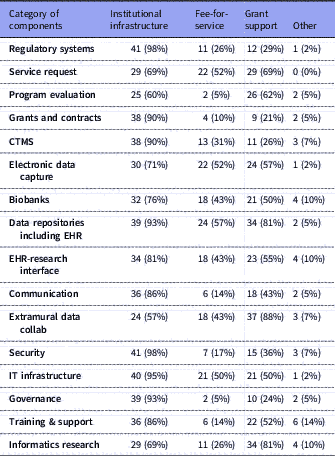 Category of components Institutional infrastructure Fee-for-service Grant support Other
Regulatory systems 41 (98%) 11 (26%) 12 (29%) 1 (2%)
Service request 29 (69%) 22 (52%) 29 (69%) 0 (0%)
Program evaluation 25 (60%) 2 (5%) 26 (62%) 2 (5%)
Grants and contracts 38 (90%) 4 (10%) 9 (21%) 2 (5%)
CTMS 38 (90%) 13 (31%) 11 (26%) 3 (7%)
Electronic data capture 30 (71%) 22 (52%) 24 (57%) 1 (2%)
Biobanks 32 (76%) 18 (43%) 21 (50%) 4 (10%)
Data repositories including EHR 39 (93%) 24 (57%) 34 (81%) 2 (5%)
EHR-research interface 34 (81%) 18 (43%) 23 (55%) 4 (10%)
Communication 36 (86%) 6 (14%) 18 (43%) 2 (5%)
Extramural data collab 24 (57%) 18 (43%) 37 (88%) 3 (7%)
Security 41 (98%) 7 (17%) 15 (36%) 3 (7%)
IT infrastructure 40 (95%) 21 (50%) 21 (50%) 1 (2%)
Governance 39 (93%) 2 (5%) 10 (24%) 2 (5%)
Training & support 36 (86%) 6 (14%) 22 (52%) 6 (14%)
Informatics research 29 (69%) 11 (26%) 34 (81%) 4 (10%)